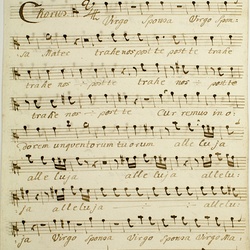 Chorus
Virgo Sponsa Virgo Spon:
sa Mater trahe nos post te post te
trahe nos post te trahe nos
trahe nos post te Curremus in o:
dorem unguentorum tuorum alleluja
alleluja alleluja allelu:
ja alleluja allelu:
ja Virgo Sponsa Virgo Ma: